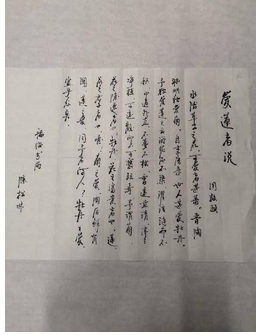 爱莲者说
周敦颐
水陆草木之花，可爱者甚蕃。晋陶
渊明独爱菊。自李唐来，世人甚爱牡丹。
予独爱莲之出淤泥而不染，濯清涟而不
妖，中通外直，不蔓不枝，香远益清，亭亭
净植，可远观而不可亵玩焉。予谓菊
花之隐逸者也；牡丹，花之富贵者也；莲，
花之君子者也。噫！菊之爱，陶后鲜有
闻。莲之爱，同予者何人？牡丹之爱，
宜乎众矣。